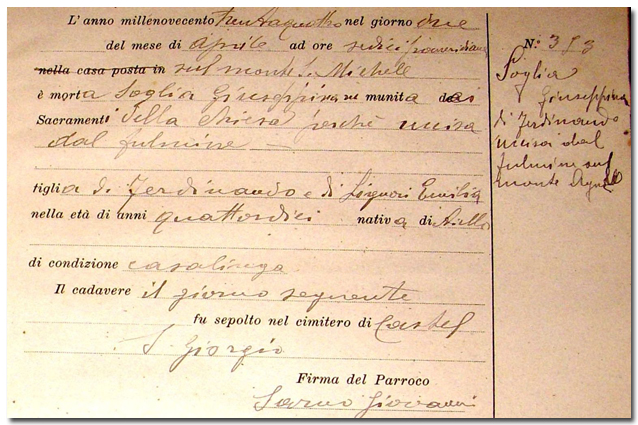 L'anno millenovecento trentaquattro nel giorno due
del mese di aprile ad ore sedici pomeridiane
nella casa posta in sul monte S. Michele
è morta Soglia Giuseppina non munita dei
Sacramenti della Chiesa perchè uccisa
dal fulmine
figlia di Ferdinando e di Liguori Emilia
nella età di anni quattordici nativa di Aiello
di condizione casalinga
Il cadavere il giorno seguente
fu sepolto nel cimitero di Castel
S. Giorgio
Firma del Parroco
Sarno Giovanni
N. 393
Soglia
Giuseppina
di Ferdinando
uccisa dal
fulmine sul
monte